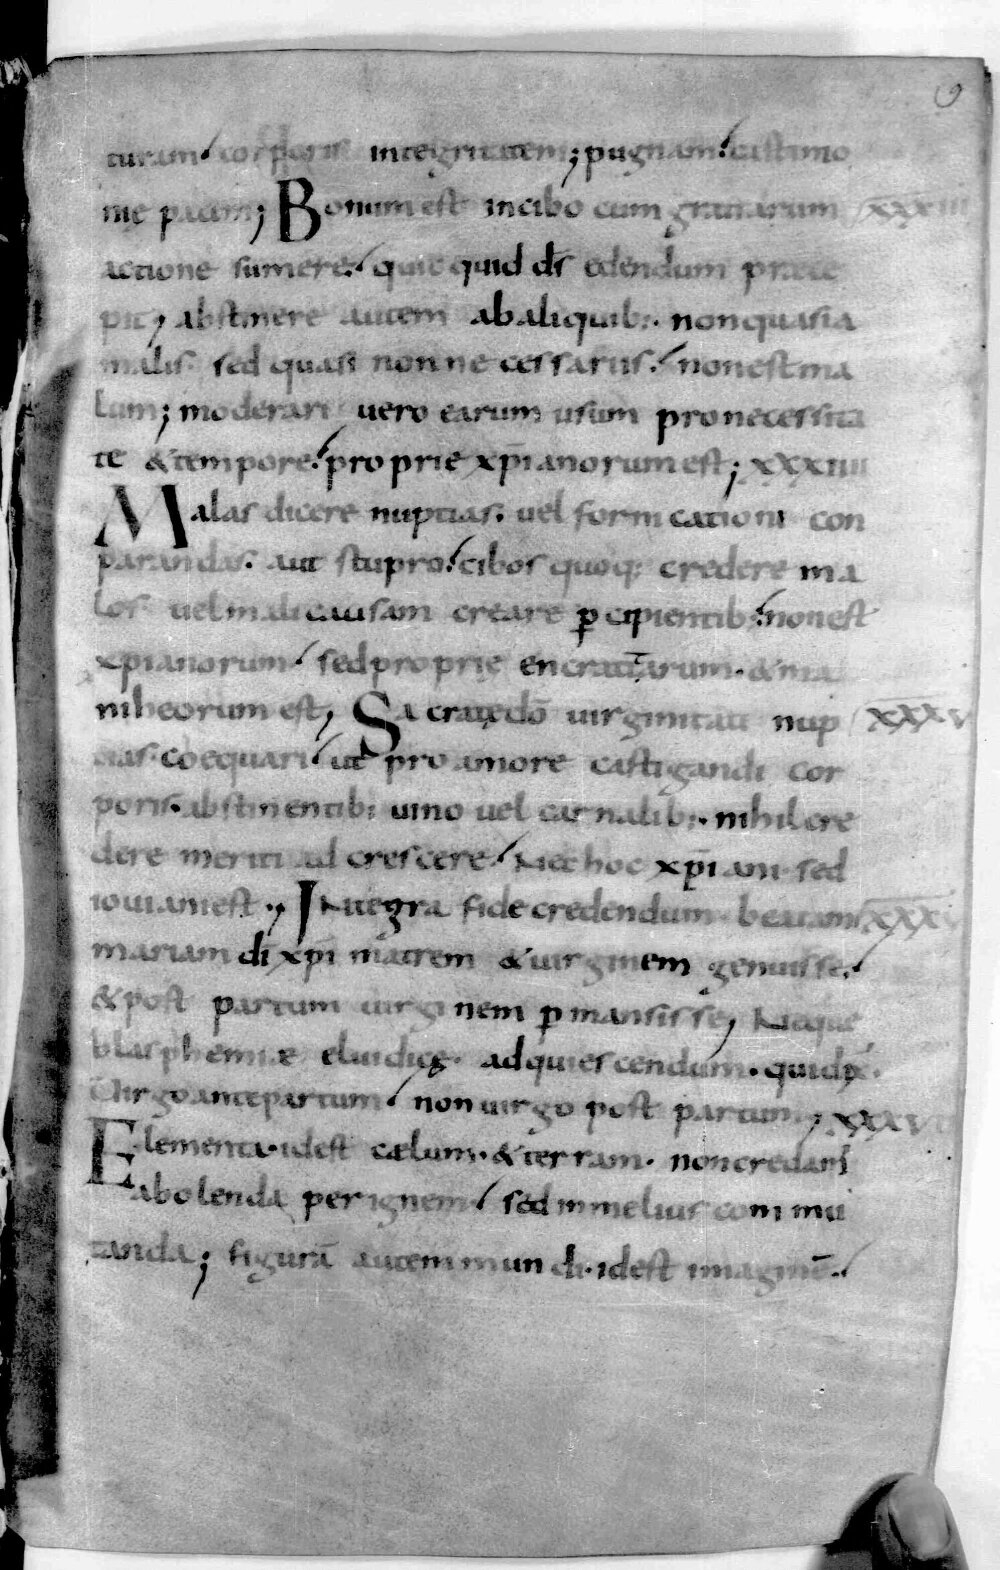 9
turam. corporis integritatem; pugnam. castimo
nie pacem; Bonum est in cibo cum gratiarum XXXIII
actione sumere. quic quid ds edendum prece
pit, abstinere autem ab aliquib; non quasi a
malis. sed quasi non ne cessariis. non est ma
lum; moderari uero earum usum pro necessita
te & tempore. proprie xpianorum est; XXXIIII
Malas dicere nuptias. uel fornicationi con
parandas. aut stupro. cibos quoq; credere ma
los. uel mali causam creare p cipientib; non est
xpianorum. sed proprie encratitarum. & ma
niheorum est, Sacratę dō uirginitati nup XXXV
tias coequari. ut pro amore castigandi cor
poris. abstinentib; uino uel carnalib;. nihil cre
dere meriti ad crescere. Nec hoc xpiani sed
iouiani est., Integra fide credendum. beatam XXXVI
mariam di xpi matrem & uirginem genuisse.
& post partum uirginem p mansisse, Neque
blasphemiæ eluidię. adquiescendum. qui dix.
Uirgo ante partum. non uirgo post partum, XXXVII
Elementa. idest cælum. & terram. non credam
abolenda per ignem. sed in melius com mu
tanda; figurā autem mundi. idest imaginē.